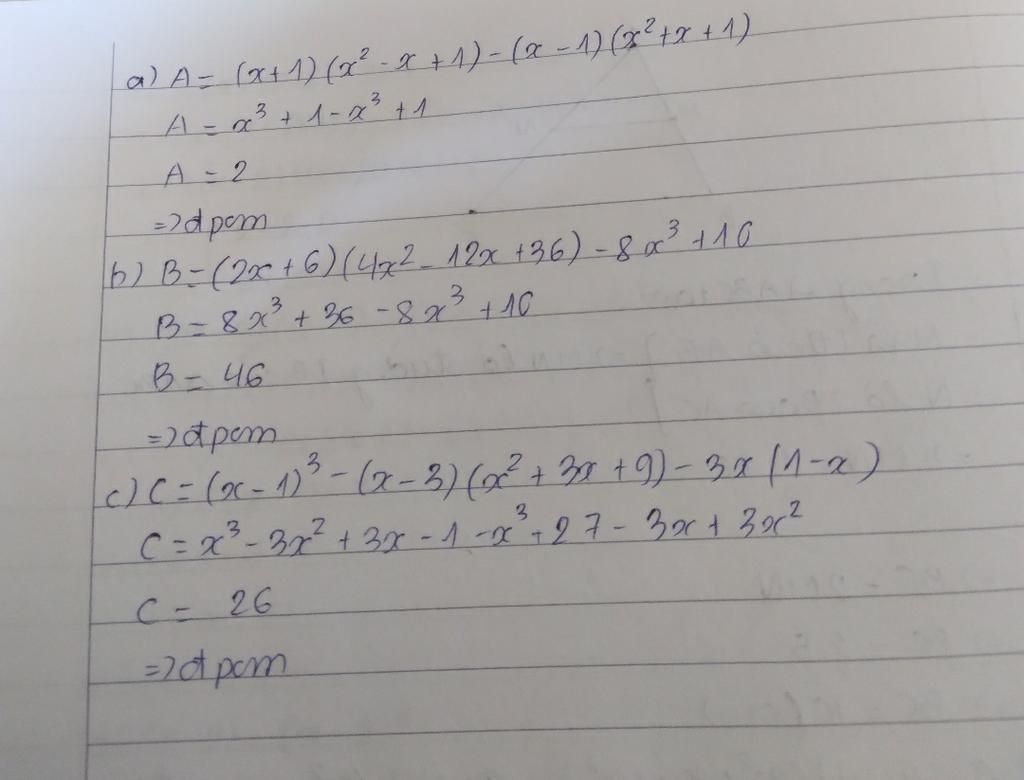 a) A = (x+1)(x² - x + 1) - (x - 1)(x² + x + 1)
A = x³ + 1 - x³ + 1
A = 2
=> đpcm
b) B = (2x + 6)(4x² - 12x + 36) - 8x³ + 10
B = 8x³ + 36 - 8x³ + 10
B = 46
=> đpcm
c) C = (x - 1)³ - (x - 3)(x² + 3x + 9) - 3x(1 - x)
C = x³ - 3x² + 3x - 1 - x³ + 27 - 3x + 3x²
C = 26
=> đpcm